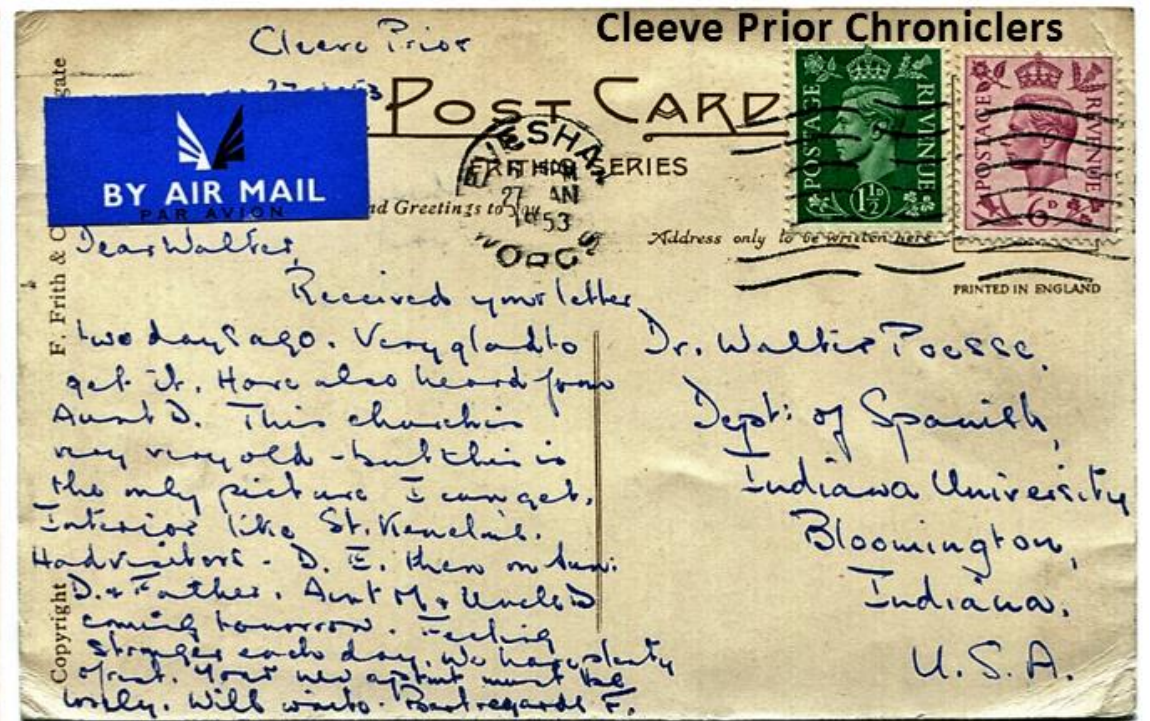 Cleeve Prior Chroniclers
Cleeve Prior
POST CARD
FRITH'S SERIES
BY AIR MAIL
PAR AVION
nd Greetings to
Address only to be written here
POSTAGE REVENUE 1½D
POSTAGE REVENUE 6D
EVESHA
27 JAN
53
WORCS
PRINTED IN ENGLAND
Copyright
F. Frith & C
gate
Dear Walter,
Received your letter
two days ago. Very glad to
get it. Have also heard from
Aunt D. This church is
very very old - but this is
the only picture I can get.
Interior like St. Kenelm's.
Had visitors - D. E. then on Sun:
D. & Father. Aunt M & Uncle D
coming tomorrow. Feeling
stronger each day. We have plenty
of Your new must be
lovely. Will write. Best regards F.
Dr. Walter Poesse,
Dept: of Spanish,
Indiana University
Bloomington,
Indiana.
U.S.A.